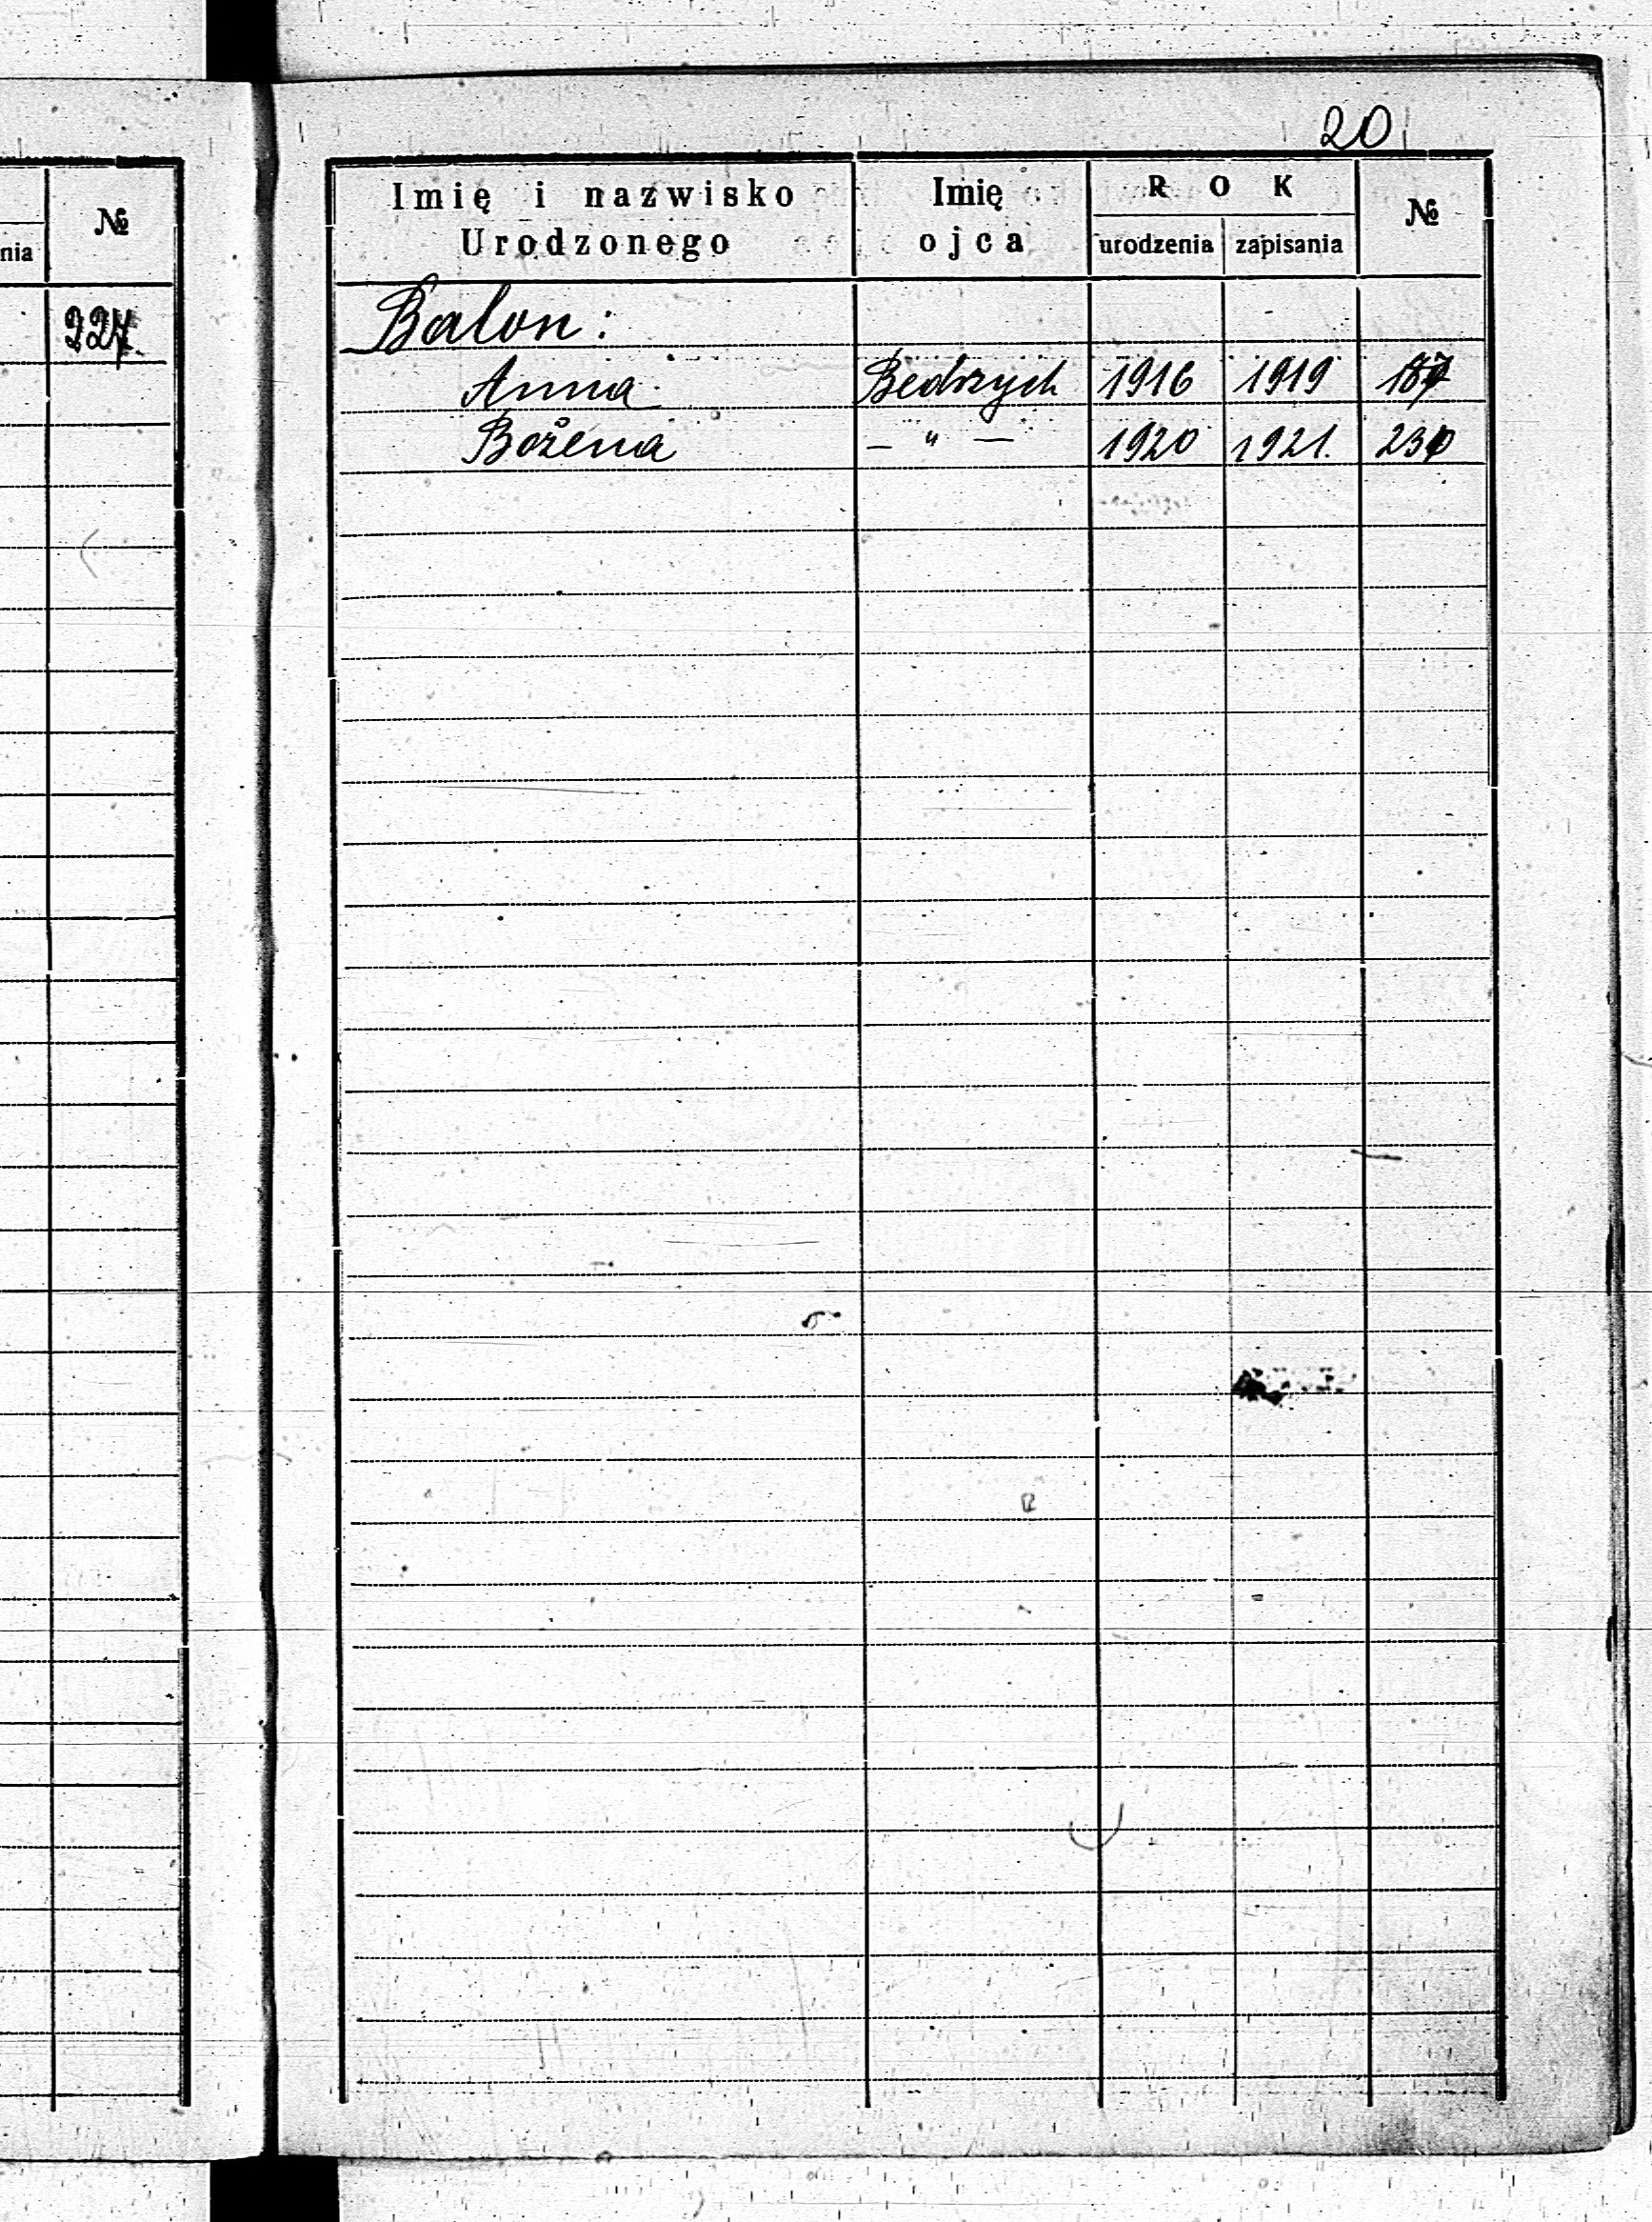 nia №
227.
20
Imię i nazwisko Urodzonego Imię ojca ROK urodzenia zapisania №
Balon:
Anna Bedrzych 1916 1919
Božena — " — 1920 1921.